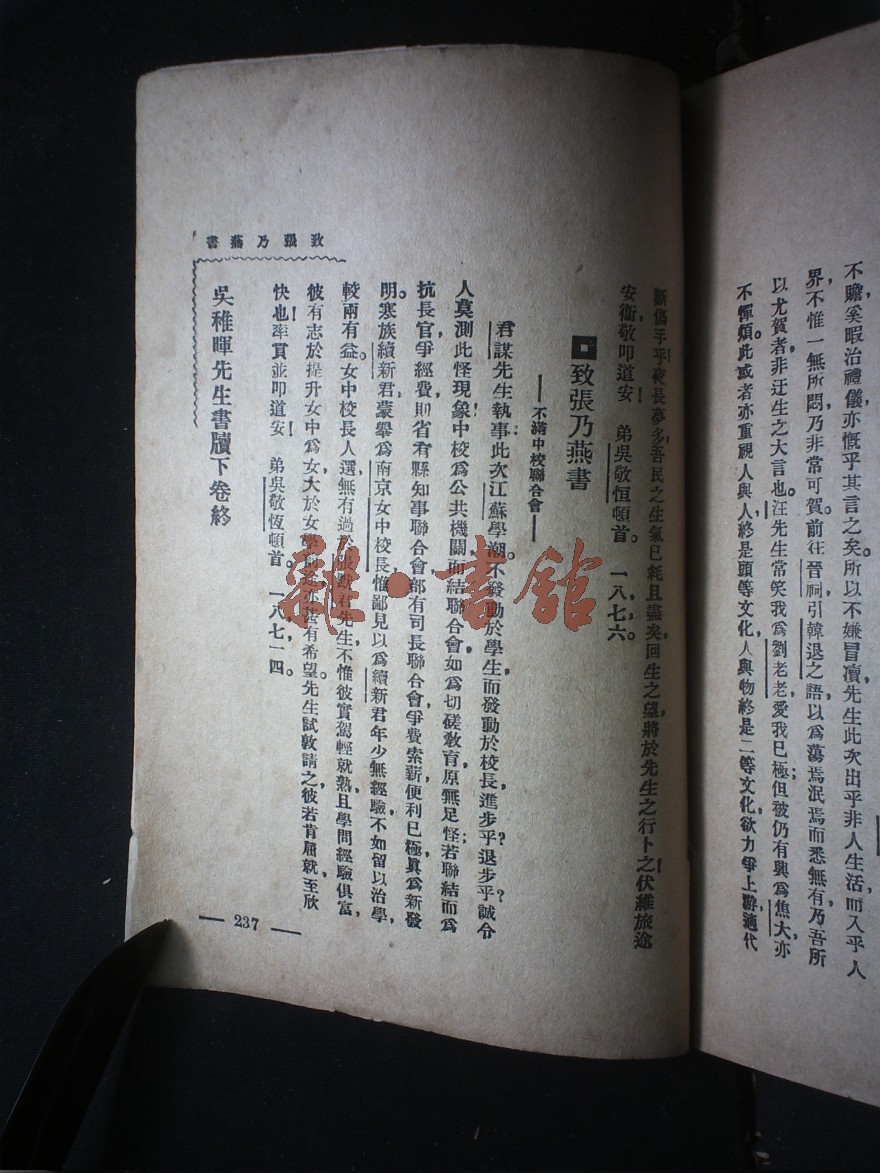 不贍奚暇治禮儀,亦慨乎其言之矣。所以不嫌冒瀆,先生此次出乎非人生活,而入乎人
界,不惟一無所悶,乃非常可賀。前往晉祠,引韓退之語,以爲蕩焉泯焉而悉無有,乃吾所
以尤賀者,非迂生之大言也。汪先生常笑我爲劉老老,愛我已極;但彼仍有興爲焦大,亦
不憚煩。此或者亦重視人與人終是頭等文化,人與物終是二等文化,欲力爭上游,適代
斲傷乎!夜長夢多,吾民之生氣已耗且盡矣,回生之望,將於先生之行卜之!伏維旅途
安衞,敬叩道安! 弟吳敬恒頓首。 一八,七,六。
致張乃燕書
——不滿中校聯合會——
君謀先生執事:此次江蘇學潮,不發動於學生,而發動於校長,進步乎?退步乎?誠令
人莫測此怪現象!中校爲公共機關,而結聯合會,如爲切磋敎育,原無足怪;若聯結而爲
抗長官爭經費,則省有縣知事聯合會,部有司長聯合會,爭費索薪,便利已極,眞爲新發
明。寒族續新君蒙舉爲南京女中校長,惟鄙見以爲續新君年少無經驗,不如留以治學,
較兩有益。女中校長人選,無有過於張默君先生,不惟彼實駕輕就熟,且學問經驗俱富,
彼有志於提升女中爲女大,於女學前途亦甚有希望。先生試敦請之,彼若肯屈就,至欣
快也!率貢並叩道安! 弟吳敬恆頓首。 一八,七,一四。
吳稚暉先生書牘下卷終
致張乃燕書
— 237 —
雜·書館